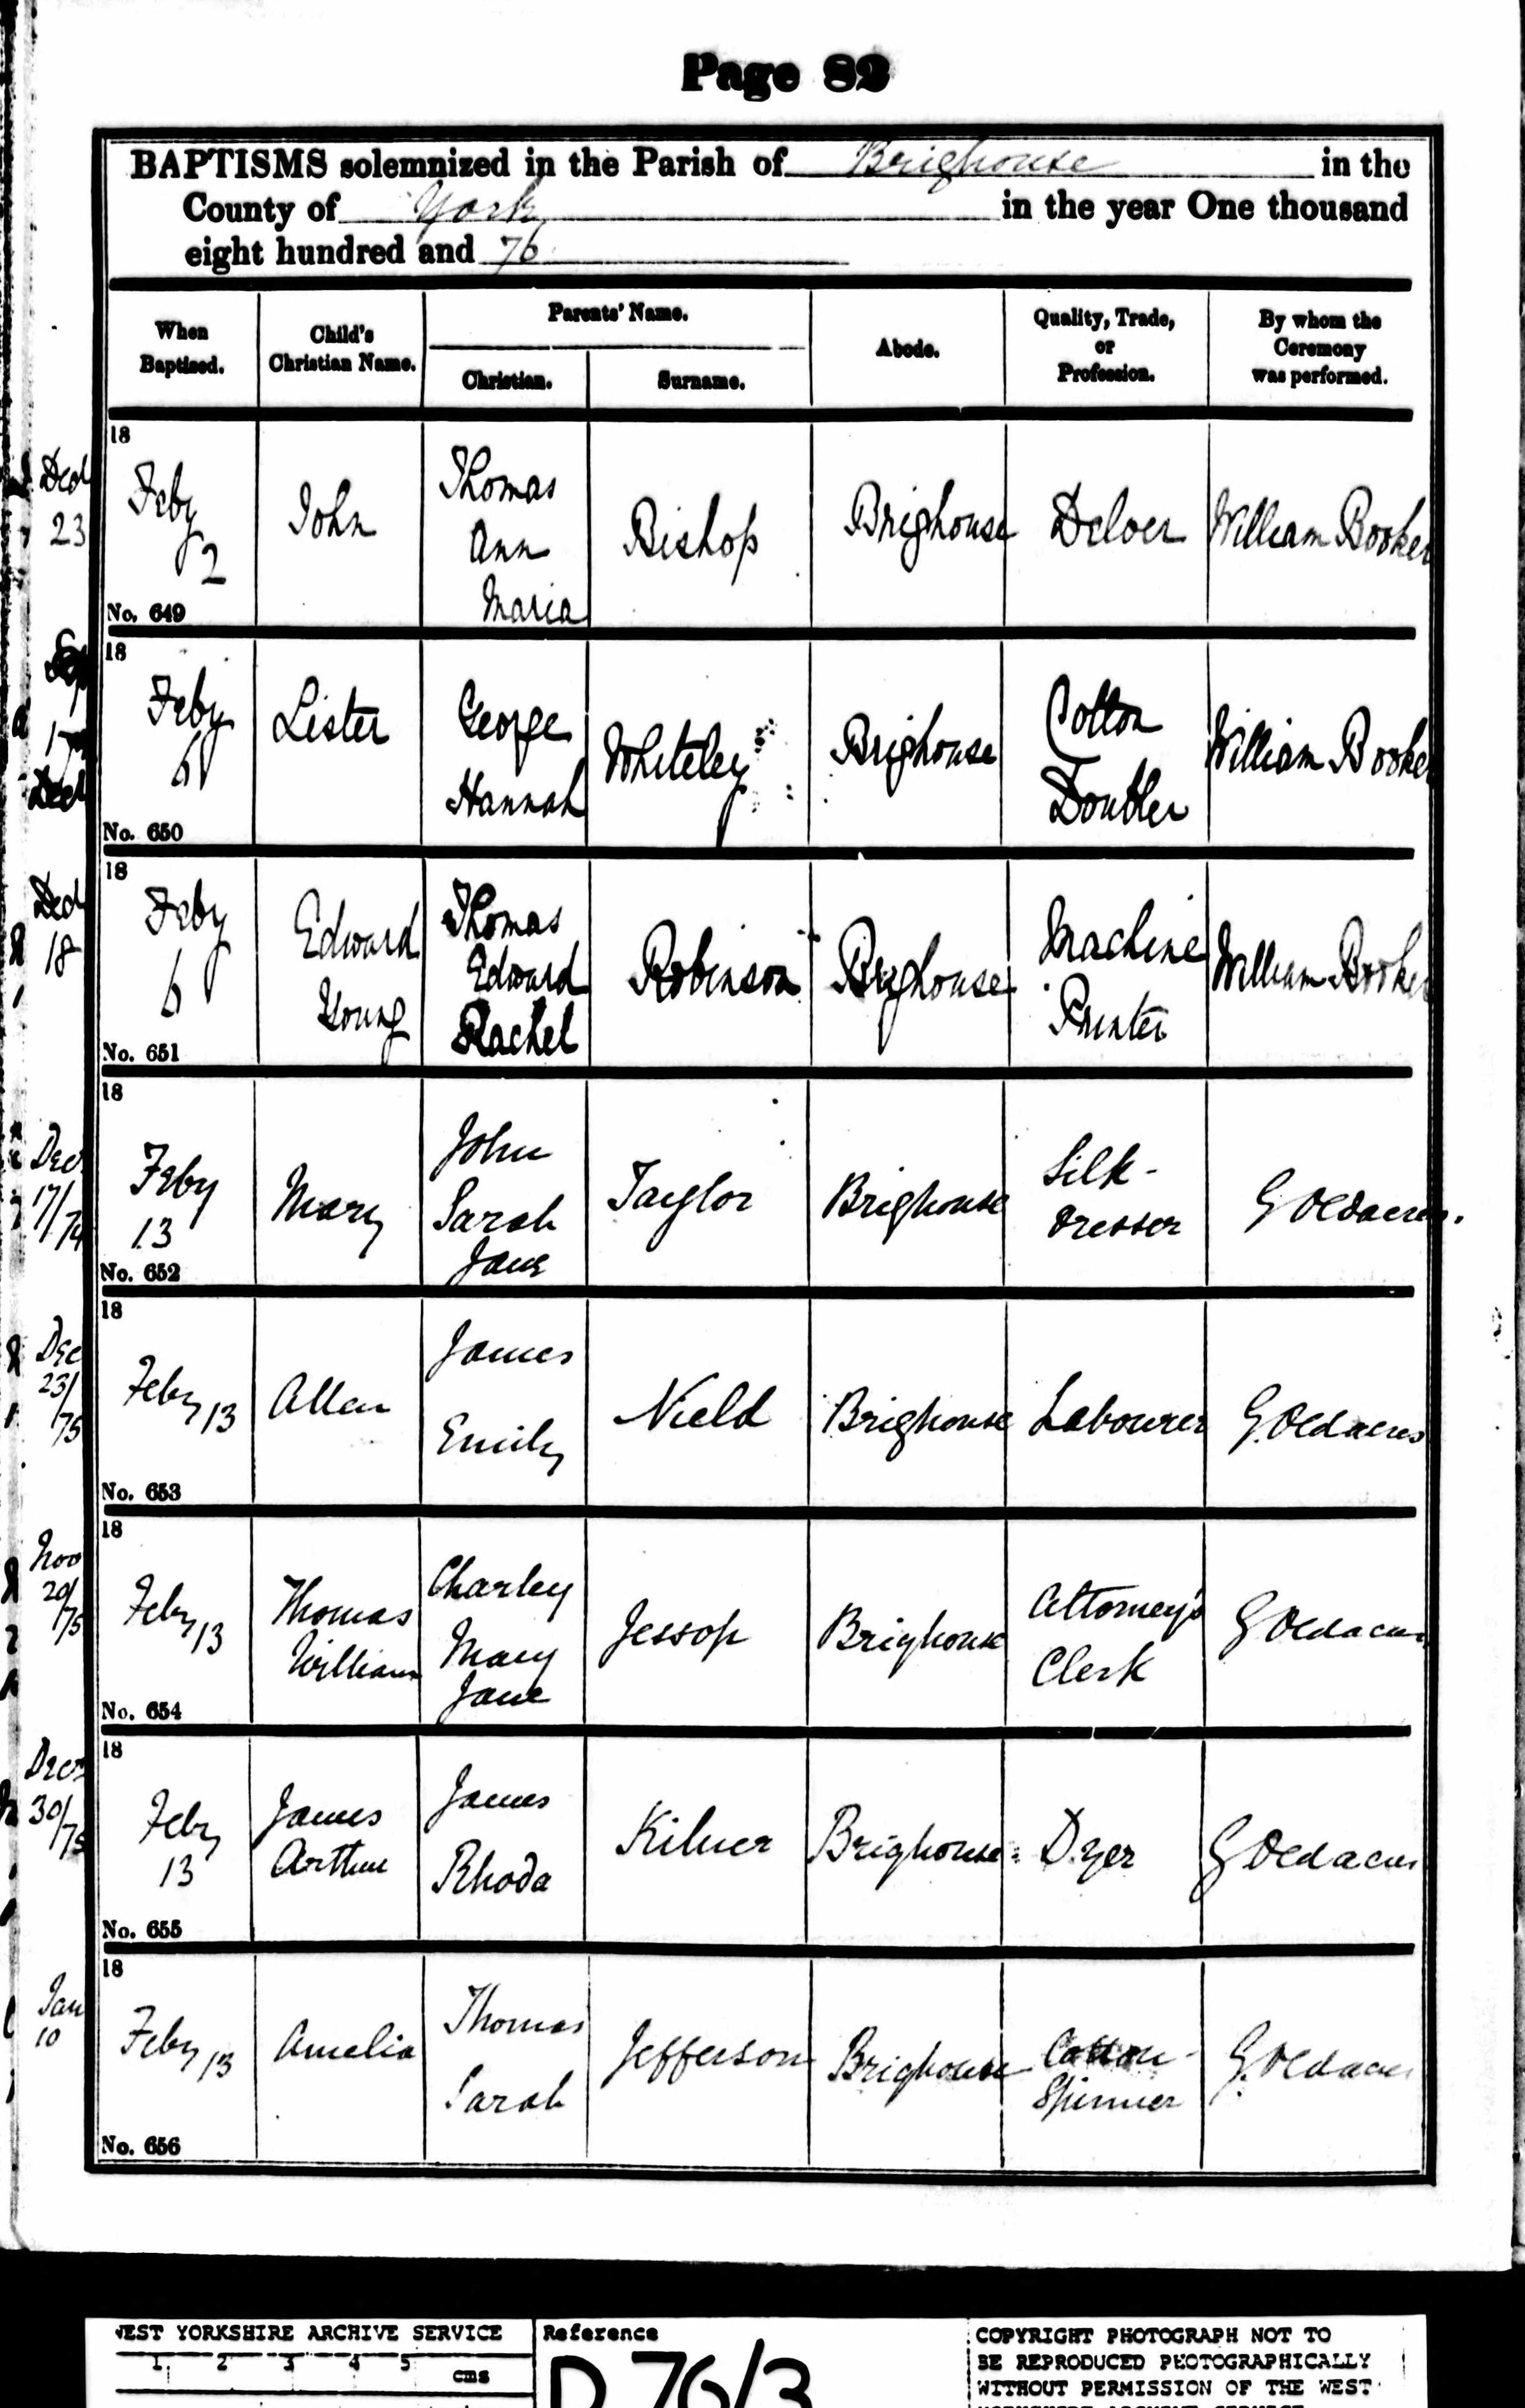 Page 82
BAPTISMS solemnized in the Parish of Brighouse in the
County of York in the year One thousand
eight hundred and 76
When Baptized.
Child's Christian Name.
Parents' Name.
Christian.
Surname.
Abode.
Quality, Trade, or Profession.
By whom the Ceremony was performed.
Decr 23
18
Feby 2
No. 649
John
Thomas
Ann
Maria
Bishop
Brighouse
Delver
William Booker
17
Decr
18
Feby 6
No. 650
Lister
George
Hannah
Whiteley
Brighouse
Cotton
Doubler
William Booker
Decr
18
18
Feby 6
No. 651
Edward
Young
Thomas
Edward
Rachel
Robinson
Brighouse
Machine
Printer
William Booker
Decr
17/74
18
Feby
13
No. 652
Mary
John
Sarah
Jane
Taylor
Brighouse
Silk-
dresser
G Oldacres.
Dec
23/75
18
Feby 13
No. 653
Allen
James
Emily
Nield
Brighouse
Labourer
G. Oldacres
Nov
20/75
18
Feby 13
No. 654
Thomas
William
Charley
Mary
Jane
Jessop
Brighouse
Attorney's
Clerk
G Oldacres
Decr
30/75
18
Feby
13
No. 655
James
Arthur
James
Rhoda
Kilner
Brighouse
Dyer
G Oldacres
Jan
10
18
Feby 13
No. 656
Amelia
Thomas
Sarah
Jefferson
Brighouse
Cotton-
Spinner
G. Oldacres
WEST YORKSHIRE ARCHIVE SERVICE
1 2 3 4 5 cms
Reference
D 76/3
COPYRIGHT PHOTOGRAPH NOT TO
BE REPRODUCED PHOTOGRAPHICALLY
WITHOUT PERMISSION OF THE WEST
YORKSHIRE ARCHIVE SERVICE